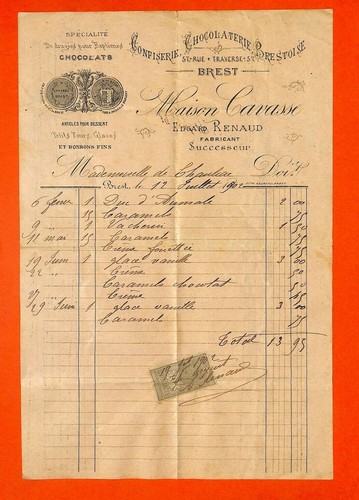 SPÉCIALITÉ
De boîtes pour Baptêmes
CHOCOLATS
ARTICLES POUR DESSERT
Petits Fours Glacés
ET BONBONS FINS
CONFISERIE, CHOCOLATERIE BRESTOISE
57, RUE TRAVERSE, 57
BREST
Maison Cavasse
EDGARD RENAUD
FABRICANT
Successeur
Mademoiselle de Doit
Brest, le 12 Juillet 1902
6 fevrier 1 Duc d'Aumale 2 00
15 Caramels 75
9 " 1 Vacherin 1 50
11 mai 15 Caramels 75
Crème fouettée
19 Juin 1 glace vanille 3 00
22 " Crème
Caramels chocolat 50
27 " Crème
29 Juin 1 glace vanille 3 00
Caramels 75
Total 13 95
Renaud